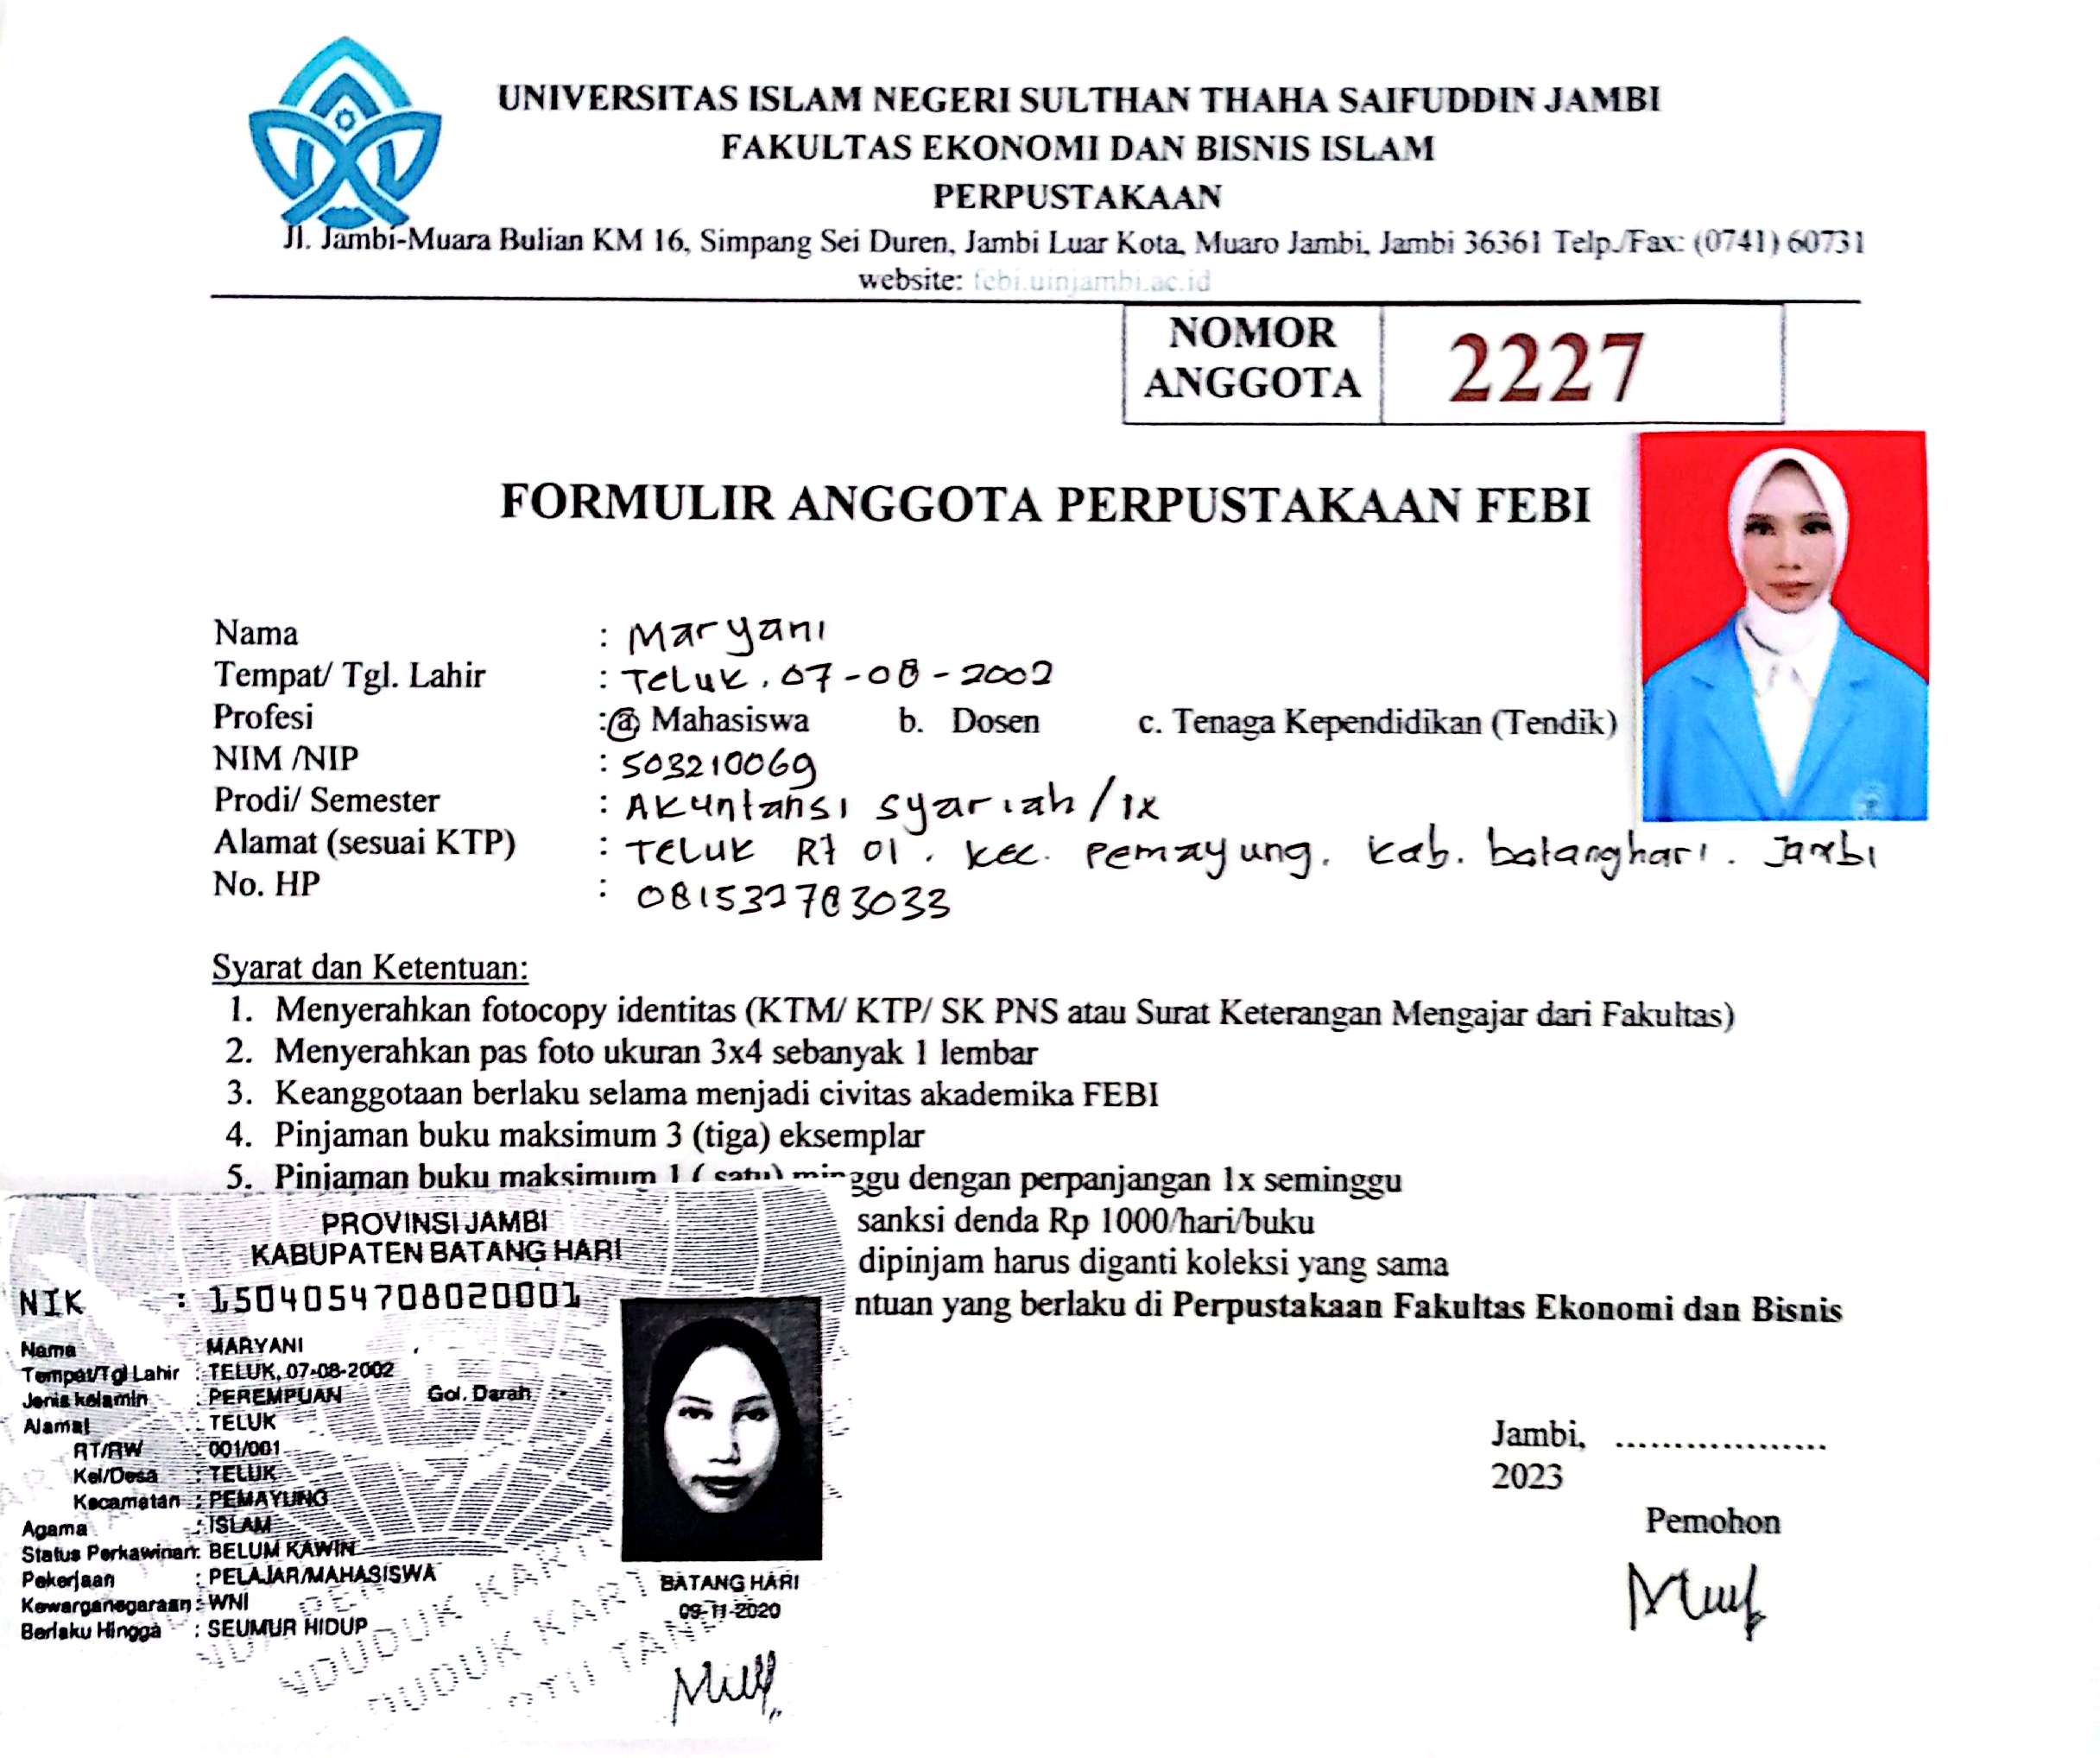 UNIVERSITAS ISLAM NEGERI SULTHAN THAHA SAIFUDDIN JAMBI
FAKULTAS EKONOMI DAN BISNIS ISLAM
PERPUSTAKAAN
Jl. Jambi-Muara Bulian KM 16, Simpang Sei Duren, Jambi Luar Kota, Muaro Jambi, Jambi 36361 Telp./Fax: (0741) 60731
website: febi.uinjambi.ac.id
NOMOR ANGGOTA 2227
FORMULIR ANGGOTA PERPUSTAKAAN FEBI
Nama : Maryani
Tempat/ Tgl. Lahir : Teluk, 07-08-2002
Profesi : a Mahasiswa b. Dosen c. Tenaga Kependidikan (Tendik)
NIM /NIP : 503210069
Prodi/ Semester : Akuntansi syariah / IX
Alamat (sesuai KTP) : Teluk Rt 01, kec. pemayung, kab. batanghari. Jambi
No. HP :
Syarat dan Ketentuan:
1. Menyerahkan fotocopy identitas (KTM/ KTP/ SK PNS atau Surat Keterangan Mengajar dari Fakultas)
2. Menyerahkan pas foto ukuran 3x4 sebanyak 1 lembar
3. Keanggotaan berlaku selama menjadi civitas akademika FEBI
4. Pinjaman buku maksimum 3 (tiga) eksemplar
5. Pinjaman buku maksimum 1 ( satu) minggu dengan perpanjangan 1x seminggu
sanksi denda Rp 1000/hari/buku
dipinjam harus diganti koleksi yang sama
ntuan yang berlaku di Perpustakaan Fakultas Ekonomi dan Bisnis
PROVINSI JAMBI
KABUPATEN BATANG HARI
NIK : 1504054708020001
Nama : MARYANI
Tempat/Tgl Lahir : TELUK, 07-08-2002
Jenis kelamin : PEREMPUAN Gol. Darah : -
Alamat : TELUK
RT/RW : 001/001
Kel/Desa : TELUK
Kecamatan : PEMAYUNG
Agama : ISLAM
Status Perkawinan: BELUM KAWIN
Pekerjaan : PELAJAR/MAHASISWA
Kewarganegaraan : WNI
Berlaku Hingga : SEUMUR HIDUP
BATANG HARI
09-11-2020
Jambi, ..................
2023
Pemohon